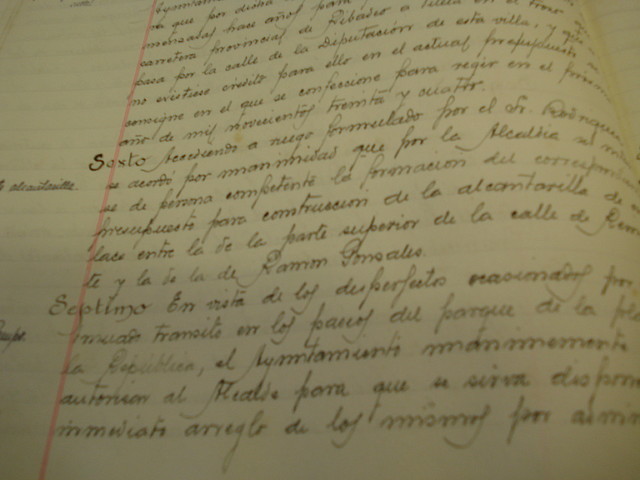 Ayuntamiento
ya que por dicha
mensadas hace años para
carretera provincial de Ribadeo a
pasa por la calle de la Diputación de esta villa, y que
no existiese crédito para ello en el actual presupuesto
consigne en el que se confeccione para regir en el próximo
año de mil novecientos treinta y cuatro.
Sexto Accediendo a ruego formulado por el Sr. Rodríguez
se acordó por unanimidad que por la Alcaldía se
alcantarilla.
se de persona competente la formación del correspondiente
presupuesto para construccion de la alcantarilla de
lace entre la de la parte superior de la calle de
te y la de la de Ramon Gonzalez.
Septimo En vista de los desperfectos ocasionados por
tinuado transito en los paseos del parque de la
Parque.
la República, el Ayuntamiento unánimemente
autorizar al Alcalde para que se sirva disponer
inmediato arreglo de los mismos por